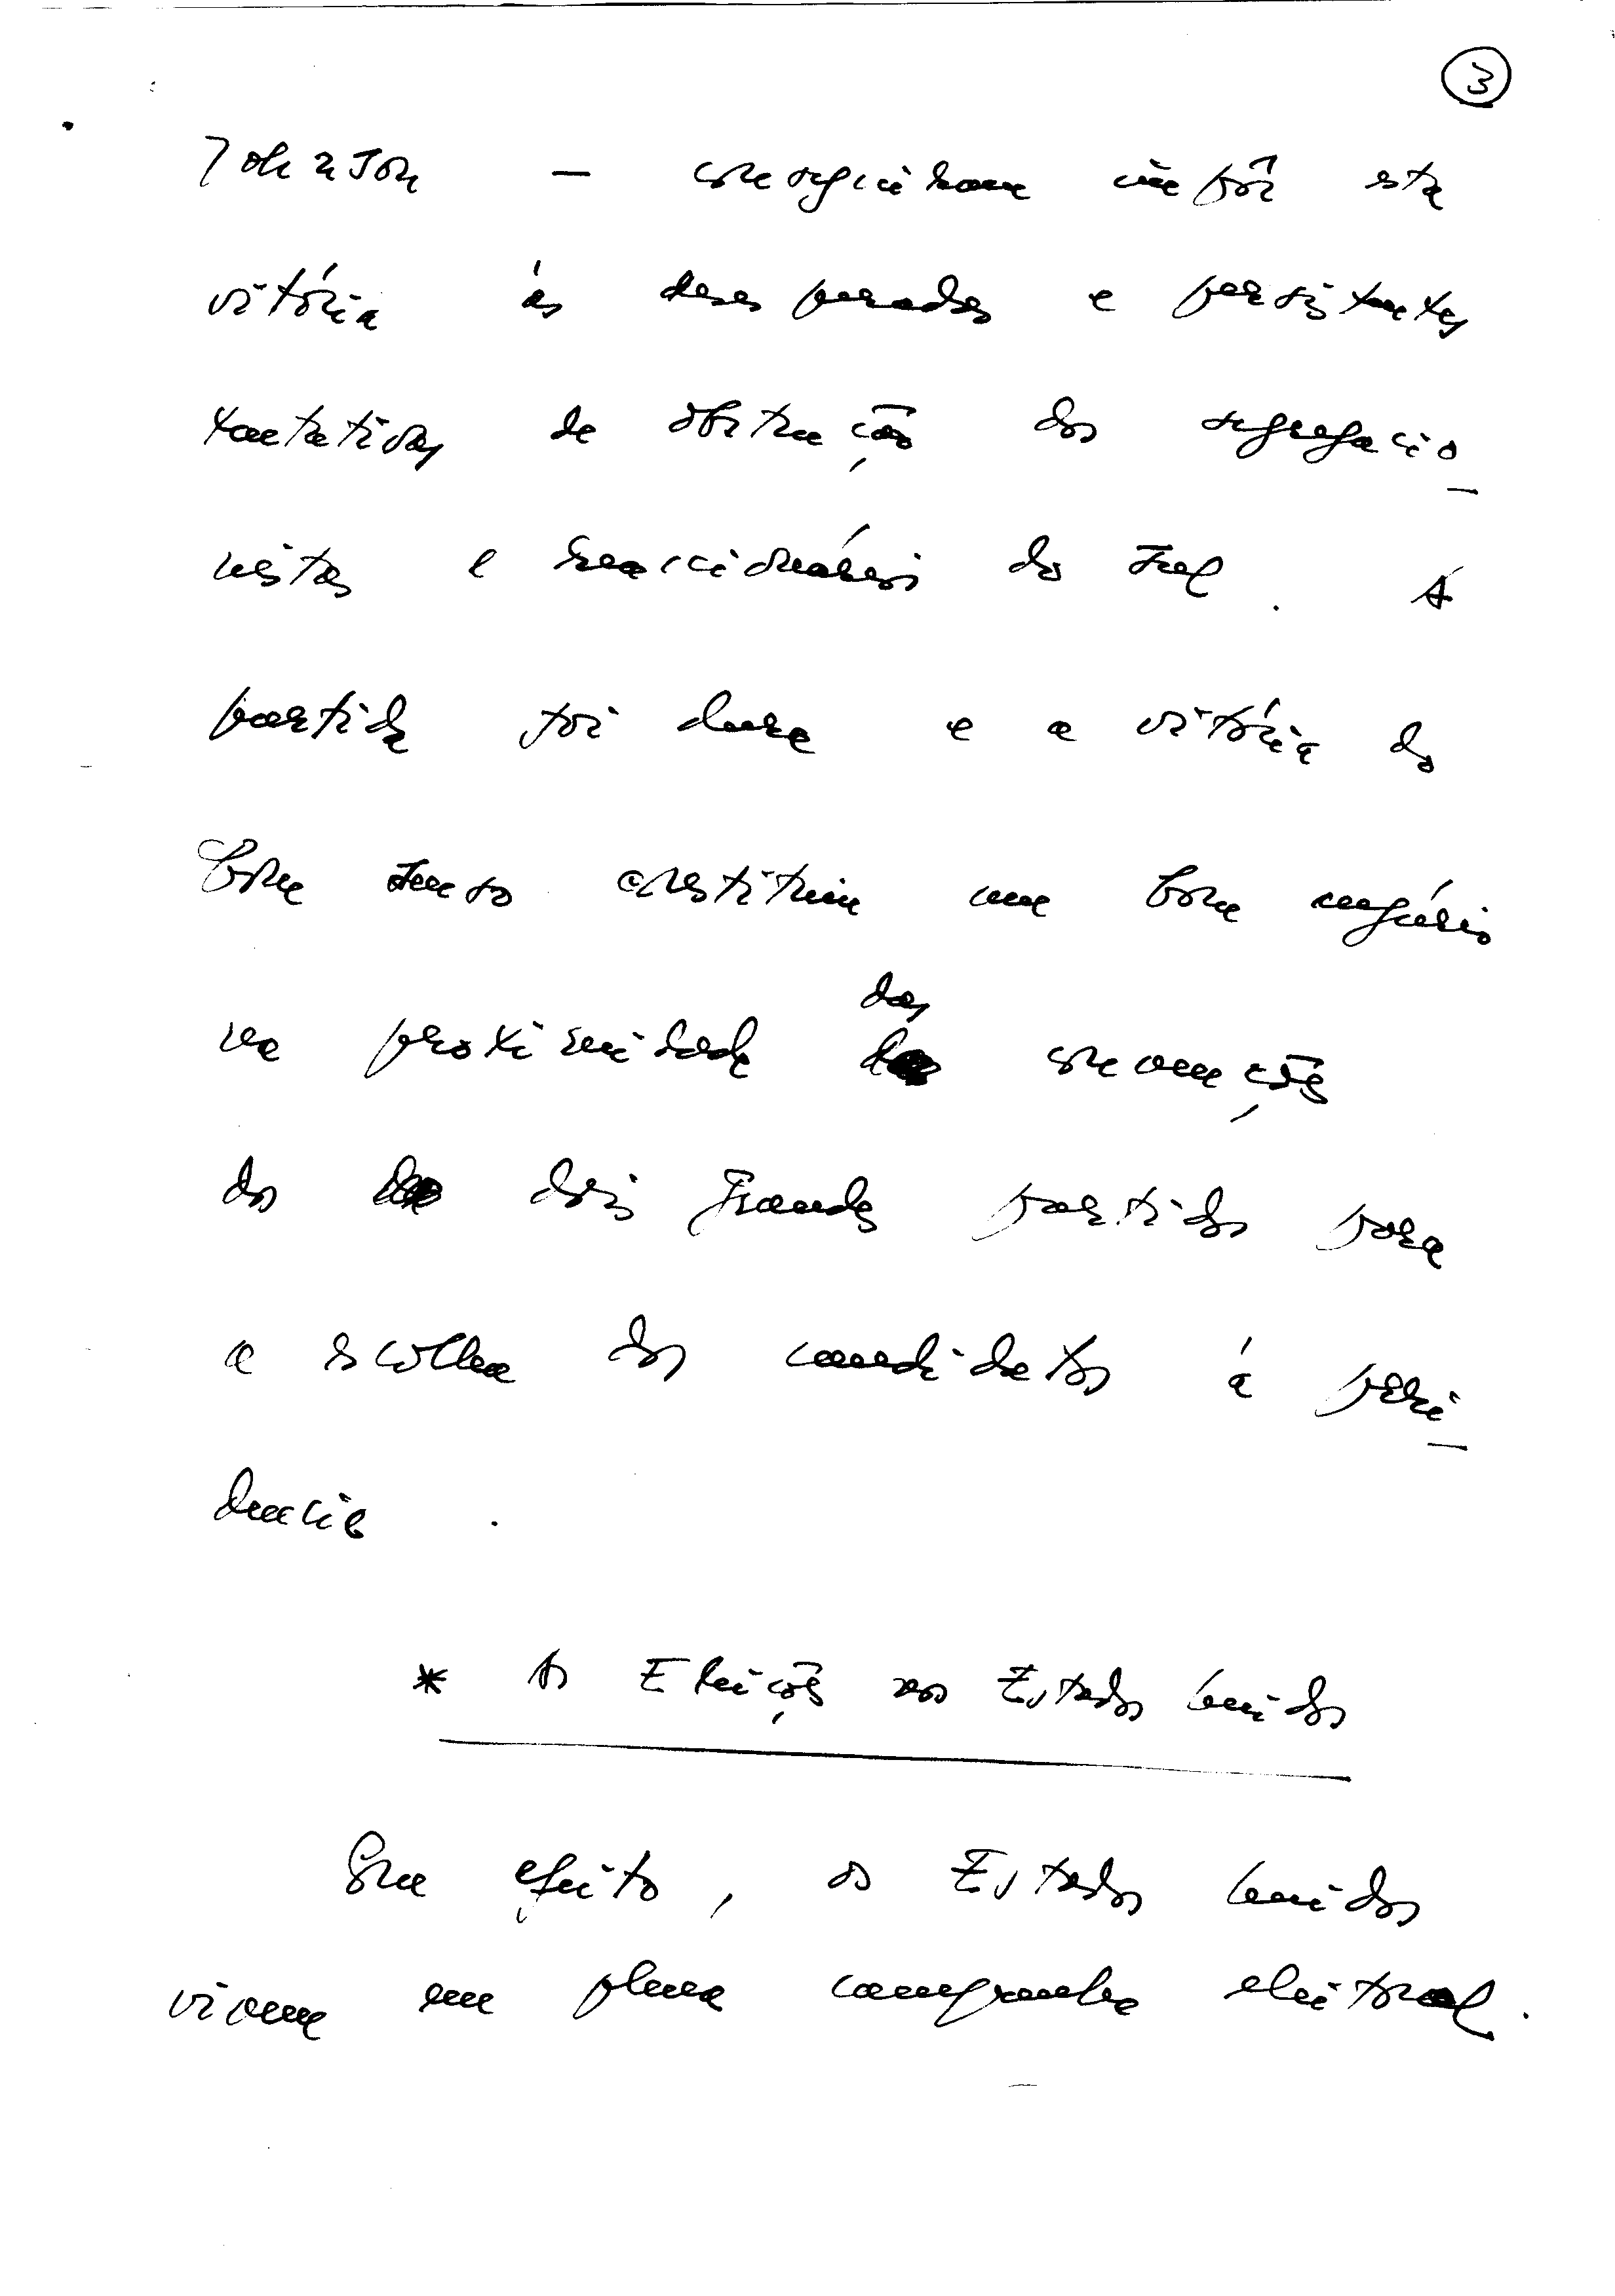 3
Johnson — conseguiram impôr esta
vitória às desesperadas e persistentes
tentativas de obstrução dos segregacio-
nistas e reaccionários do Sul. A
partida foi dura e a vitória do
bom senso constitui um bom augúrio
das
na proximidade convenções
dos dois grandes partidos para
a escolha dos candidatos à presi-
dência.
* As Eleições nos Estados Unidos
Com efeito, os Estados Unidos
vivem em plena campanha eleitoral.